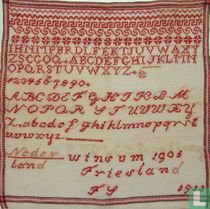 IHNITEBRDLFEKTUVWAXY
ZSCGOQ ABCDEFGHIJKLM
NOPQRSTUVWXYZ
1234567890
ABCDEFGHIJKL
NOPQRSTUVWXY
Z abcdefghiklmnopqrst
uvwxyz
Neder winsum 1906
land Friesland
FS